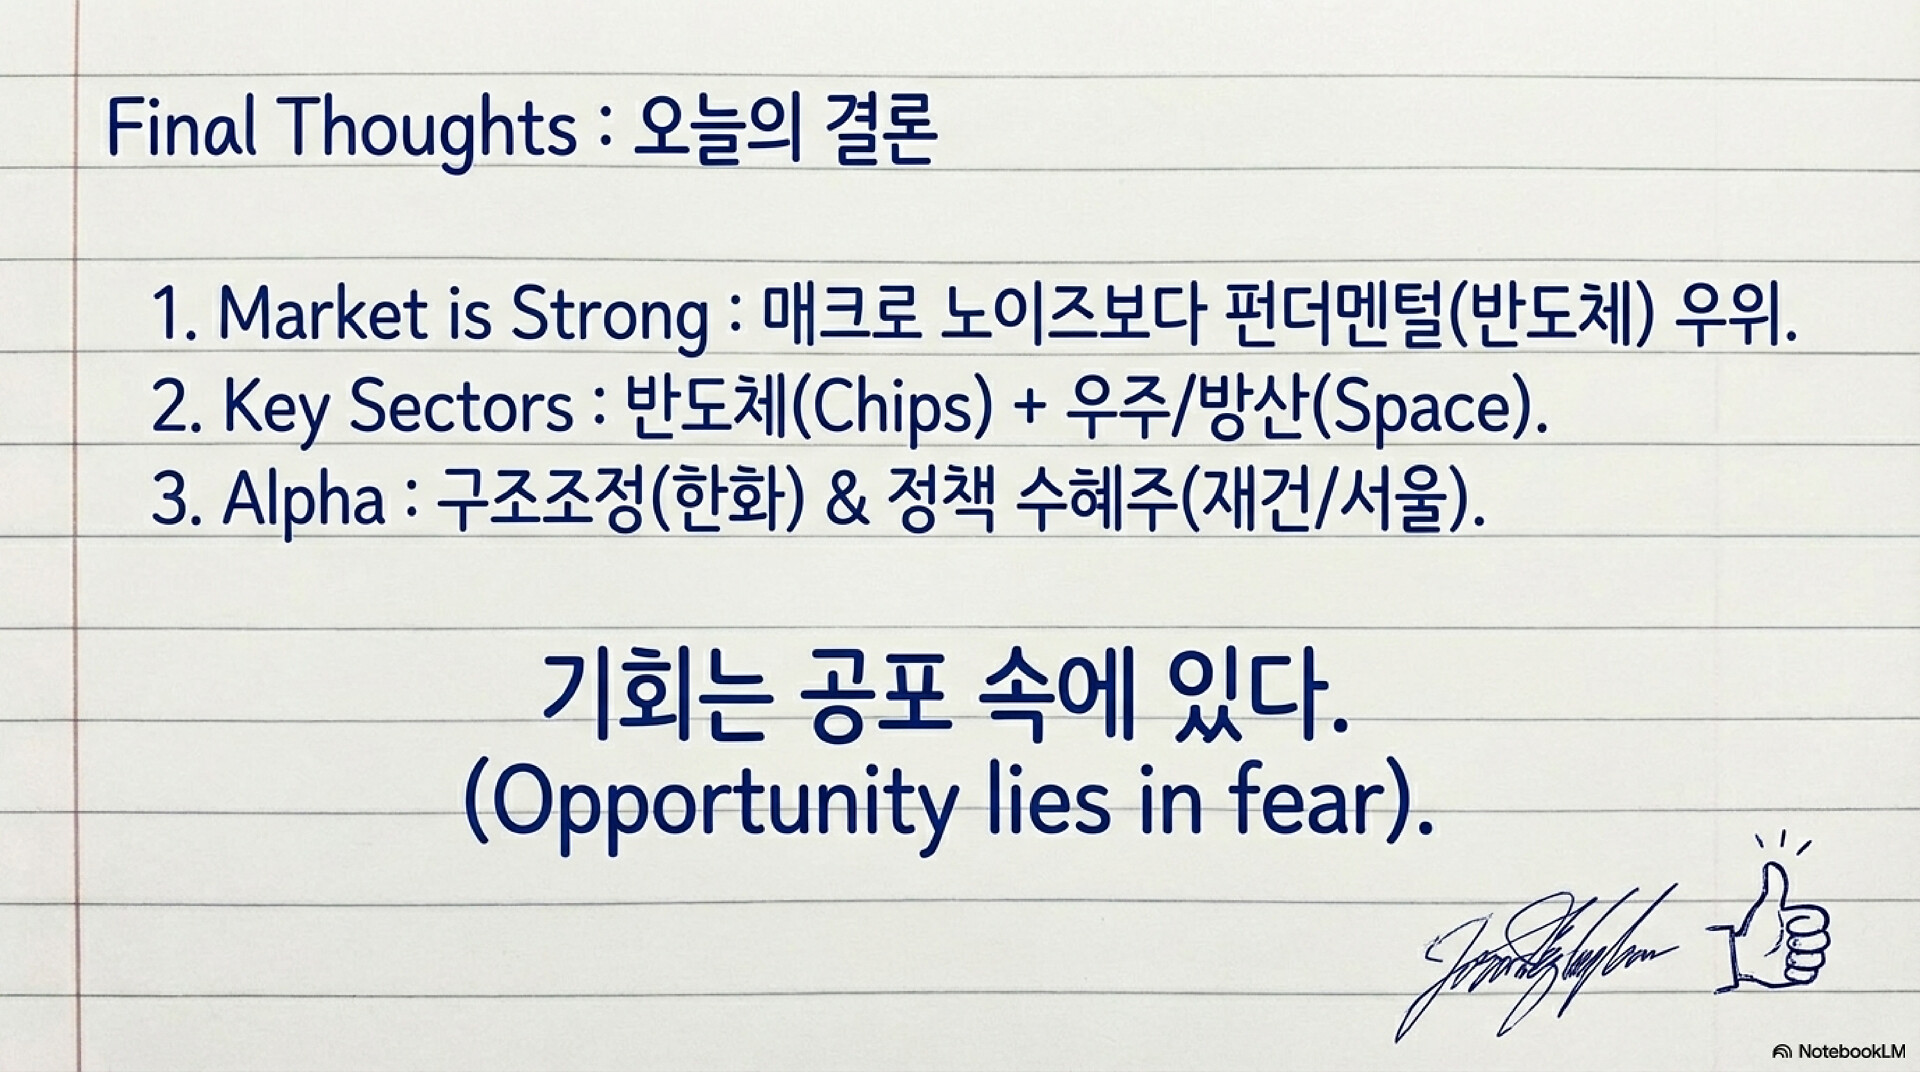 Final Thoughts : 오늘의 결론
1. Market is Strong : 매크로 노이즈보다 펀더멘털(반도체) 우위.
2. Key Sectors : 반도체(Chips) + 우주/방산(Space).
3. Alpha : 구조조정(한화) & 정책 수혜주(재건/서울).
기회는 공포 속에 있다.
(Opportunity lies in fear).
NotebookLM